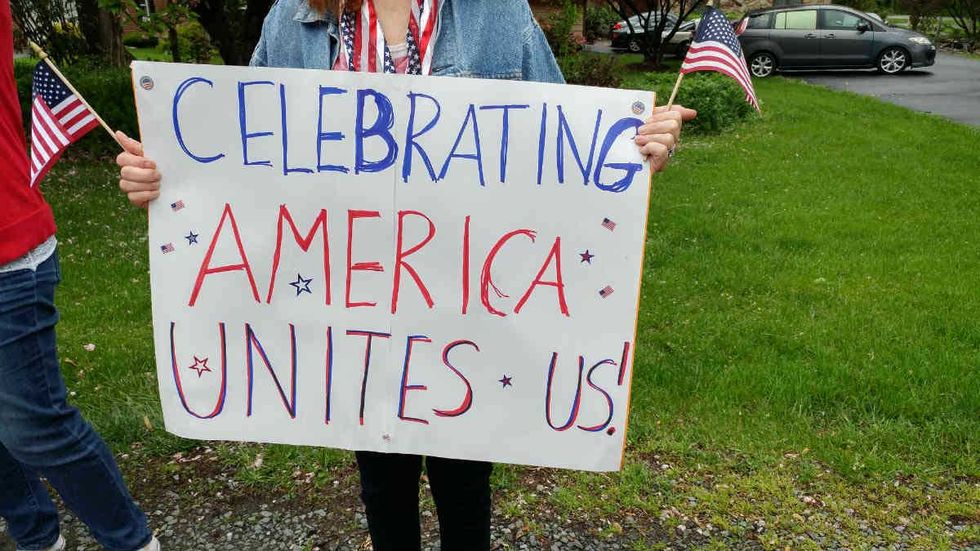 CELEBRATING
AMERICA
UNITES US!